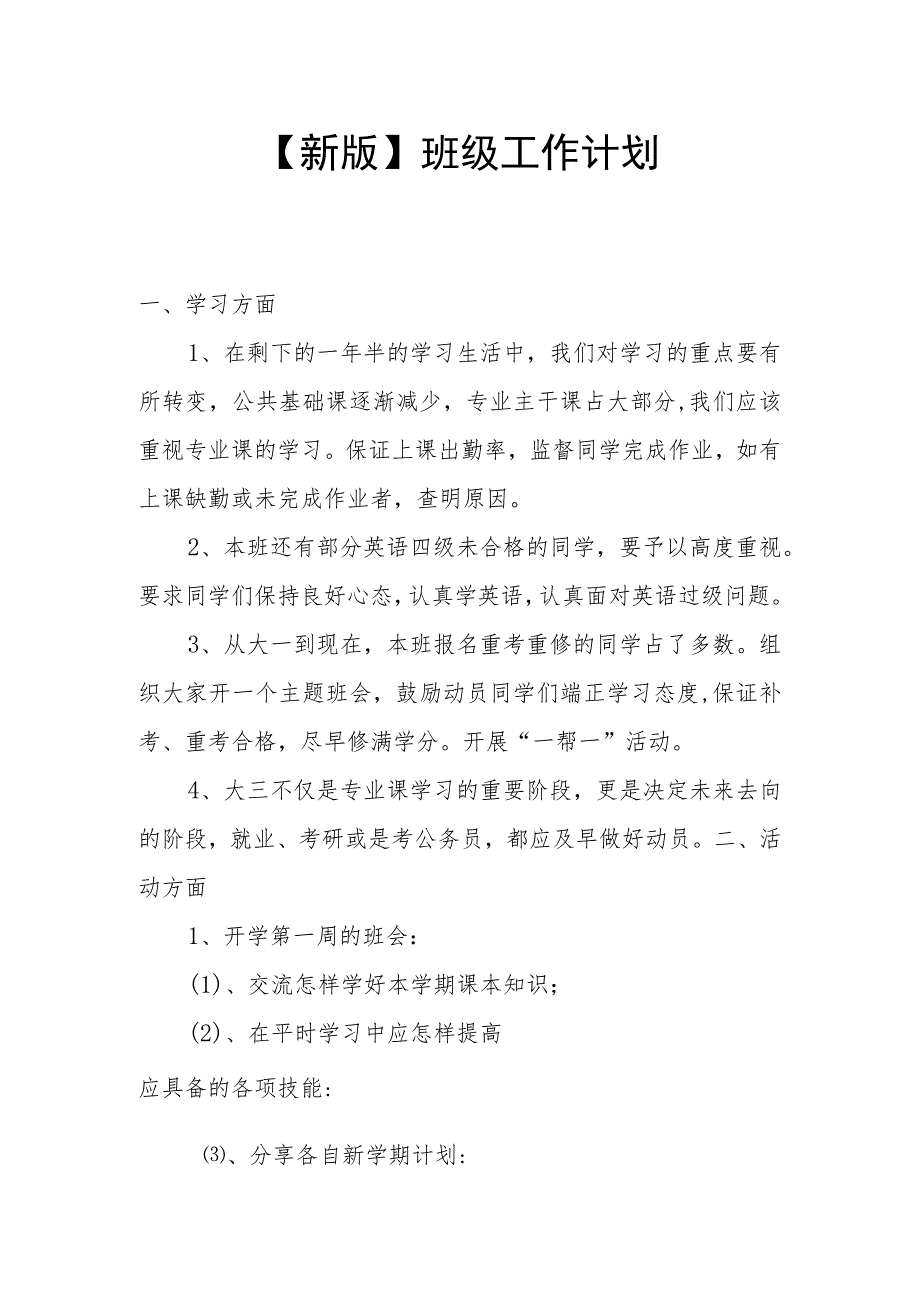 【新版】班级工作计划
一、学习方面
1、在剩下的一年半的学习生活中，我们对学习的重点要有
所转变，公共基础课逐渐减少，专业主干课占大部分,我们应该
重视专业课的学习。保证上课出勤率，监督同学完成作业，如有
上课缺勤或未完成作业者，查明原因。
2、本班还有部分英语四级未合格的同学，要予以高度重视。
要求同学们保持良好心态,认真学英语,认真面对英语过级问题。
3、从大一到现在，本班报名重考重修的同学占了多数。组
织大家开一个主题班会，鼓励动员同学们端正学习态度,保证补
考、重考合格，尽早修满学分。开展“一帮一”活动。
4、大三不仅是专业课学习的重要阶段，更是决定未来去向
的阶段，就业、考研或是考公务员，都应及早做好动员。二、活
动方面
1、开学第一周的班会：
(1)、交流怎样学好本学期课本知识；
(2)、在平时学习中应怎样提高
应具备的各项技能:
⑶、分享各自新学期计划: